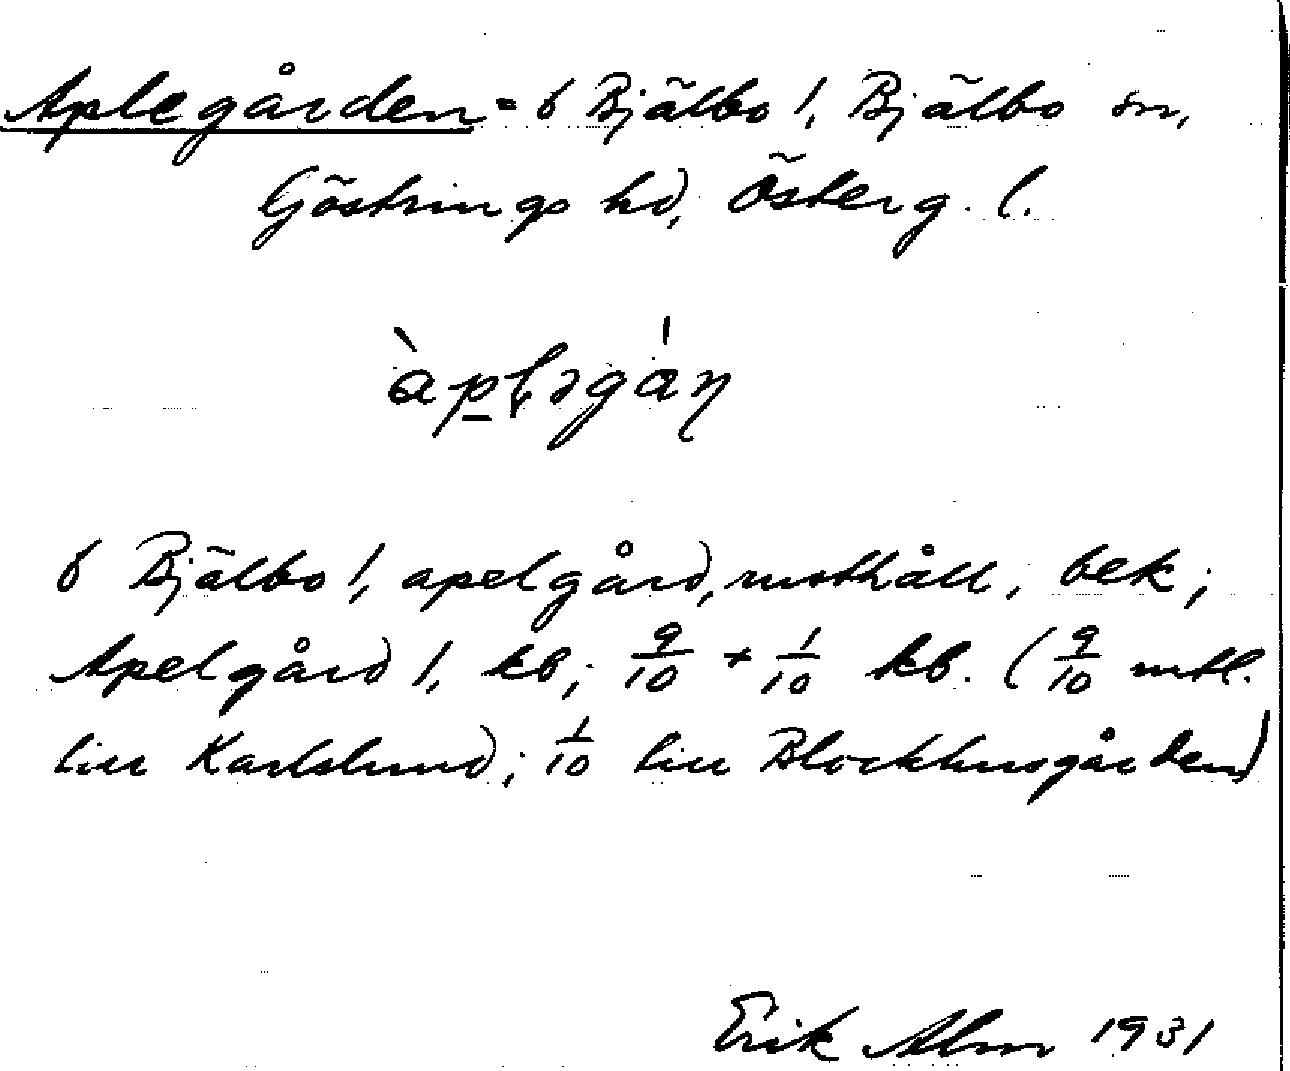 Aplegården = 6 Bjälbo 1, Bjälbo sn,
Göstrings hd, Österg. l.
6 Bjälbo 1, apelgård, mothåll, bek;
Apelgård 1, kb; 9/10 + 1/10 kb. (9/10 mtl.
liu Karlslund; 1/10 liu Blockhusgården)
Erik Alm 1931